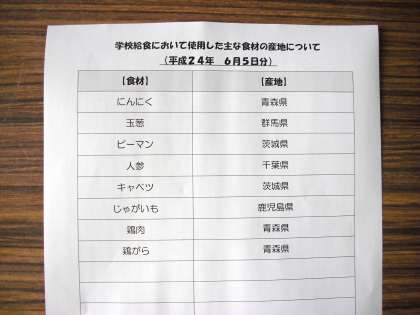 学校給食において使用した主な食材の産地について
（平成２４年　６月５日分）
【食材】　【産地】
にんにく　青森県
玉葱　群馬県
ピーマン　茨城県
人参　千葉県
キャベツ　茨城県
じゃがいも　鹿児島県
鶏肉　青森県
鶏がら　青森県